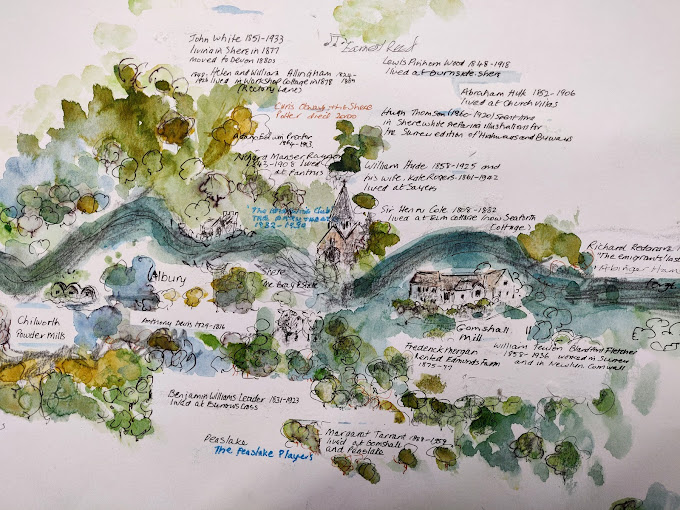 John White 1851-1933
living in Shere in 1877
moved to Devon 1880s
Helen and William Allingham
lived in Workshop Cottage in 1878
(Rectory Lane)
the Shere
Potter died 2000
Proctor
Richard Manser
1843-1908 lived
at Pantries
1932-1939
Ernest Reed
Lewis Pinhorn Wood 1848-1918
lived at Burnside Shere
Abraham Hulk 1852-1906
lived at Church Villas
Hugh Thomson (1860-1920) spent time
in Shere while preparing illustrations for
the Surrey edition of Highways and Byways
William Hyde 1858-1925 and
his wife, Kate Rogers 1861-1942
lived at Sayers
Sir Henry Cole 1808-1882
lived at Elm Cottage (now Seaforth
Cottage)
Richard Redgrave
"The emigrant's last
Abinger Ham
Albury
Shere
Chilworth
Powder Mills
Anthony Devis 1729-1816
Gomshall
Mill
Frederick Morgan
Rented Edmunds Farm
1875-77
William Teulon Blandford Fletcher
1858-1936 worked in Surrey
and in Newlyn Cornwall
Benjamin Williams Leader 1831-1923
lived at Burrows Cross
Peaslake
The Peaslake Players
Margaret Tarrant 1888-1959
lived at Gomshall
and Peaslake